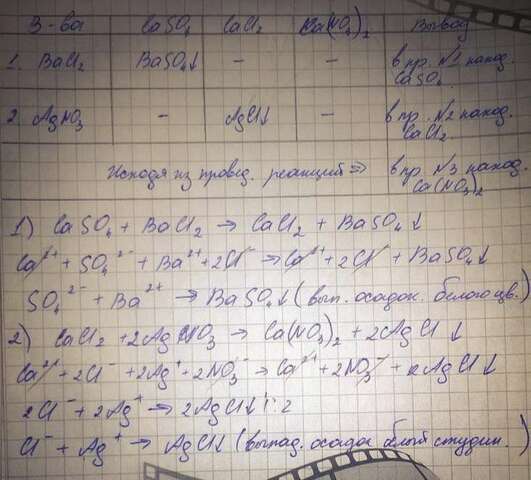 В-ва CaSO₄ CaCl₂ Ca(NO₃)₂ Вывод
1. BaCl₂ BaSO₄↓ – – в пр. №1 наход. CaSO₄
2. AgNO₃ – AgCl↓ – в пр. №2 наход. CaCl₂.
Исходя из провед. реакций ⇒ в пр. №3 наход. Ca(NO₃)₂
1) CaSO₄ + BaCl₂ → CaCl₂ + BaSO₄↓
Ca²⁺ + SO₄²⁻ + Ba²⁺ + 2Cl⁻ → Ca²⁺ + 2Cl⁻ + BaSO₄↓
SO₄²⁻ + Ba²⁺ → BaSO₄↓ (вып. осадок белого цв.)
2) CaCl₂ + 2AgNO₃ → Ca(NO₃)₂ + 2AgCl↓
Ca²⁺ + 2Cl⁻ + 2Ag⁺ + 2NO₃⁻ → Ca²⁺ + 2NO₃⁻ + 2AgCl↓
2Cl⁻ + 2Ag⁺ → 2AgCl↓ | : 2
Cl⁻ + Ag⁺ → AgCl↓ (выпад. осадок белый студин.)